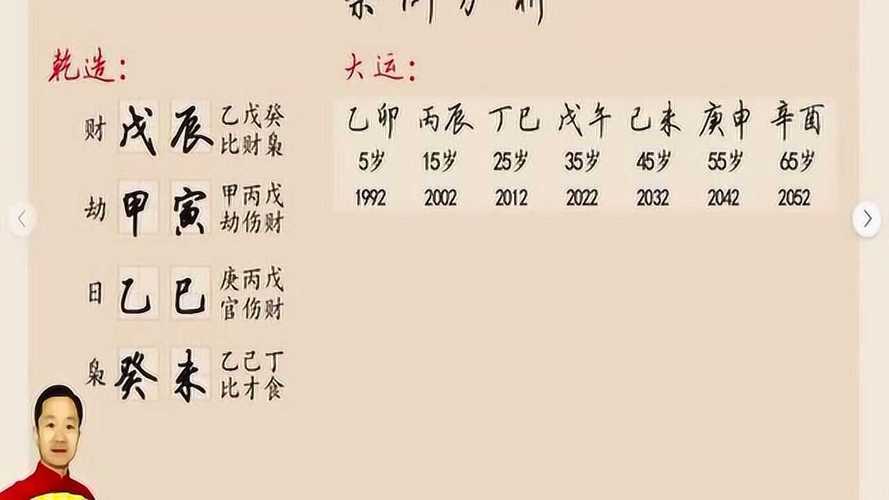 案例分析
乾造：
大运：
财 戊 辰 乙戊癸
比财枭
劫 甲 寅 甲丙戊
劫伤财
日 乙 巳 庚丙戊
官伤财
枭 癸 未 乙己丁
比才食
乙卯 丙辰 丁巳 戊午 己未 庚申 辛酉
5岁 15岁 25岁 35岁 45岁 55岁 65岁
1992 2002 2012 2022 2032 2042 2052